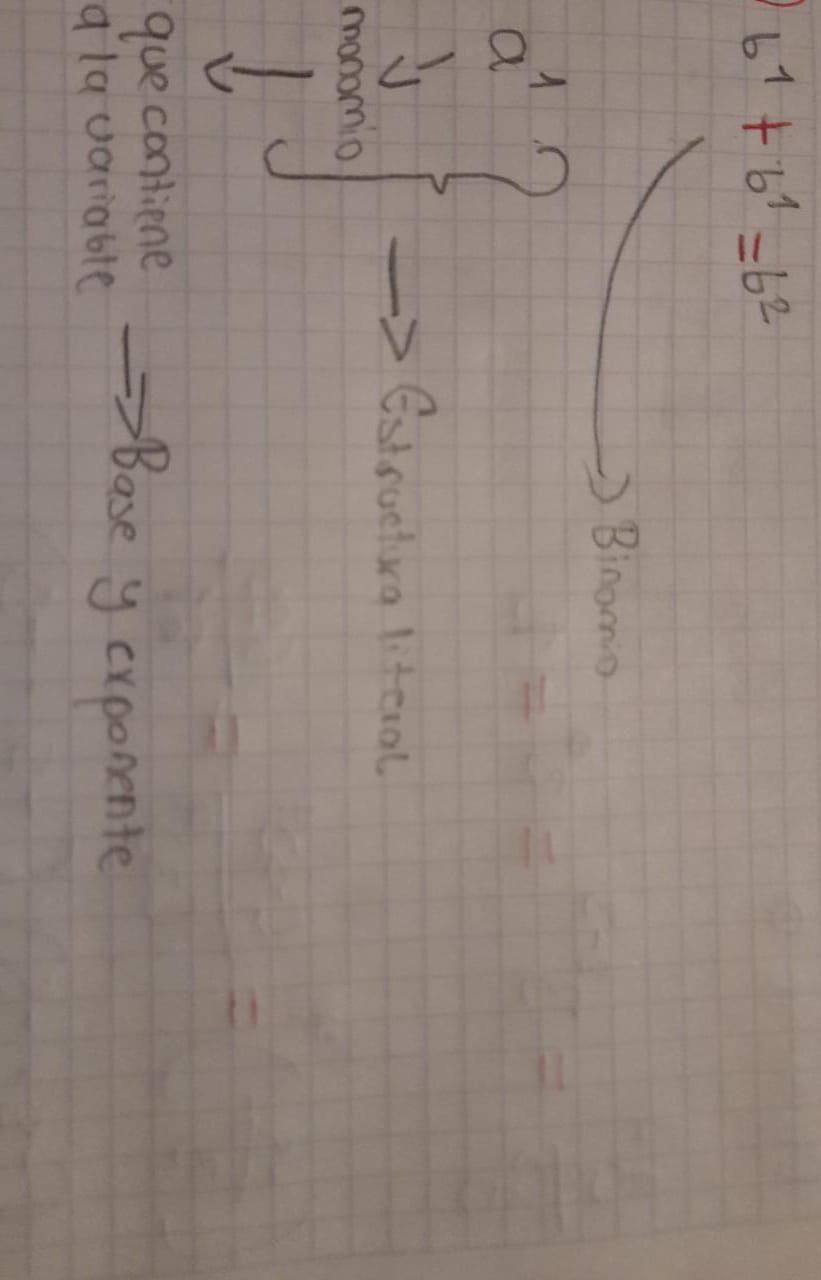 b¹ + b¹ = b²
Binomio
a¹
monomio
Estructura literal
que contiene
a la variable
Base y exponente